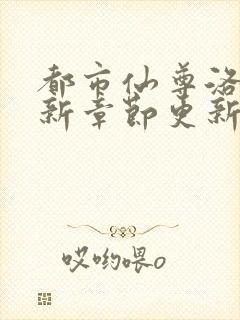 都市仙尊洛
新章节更新
哎哟喂o